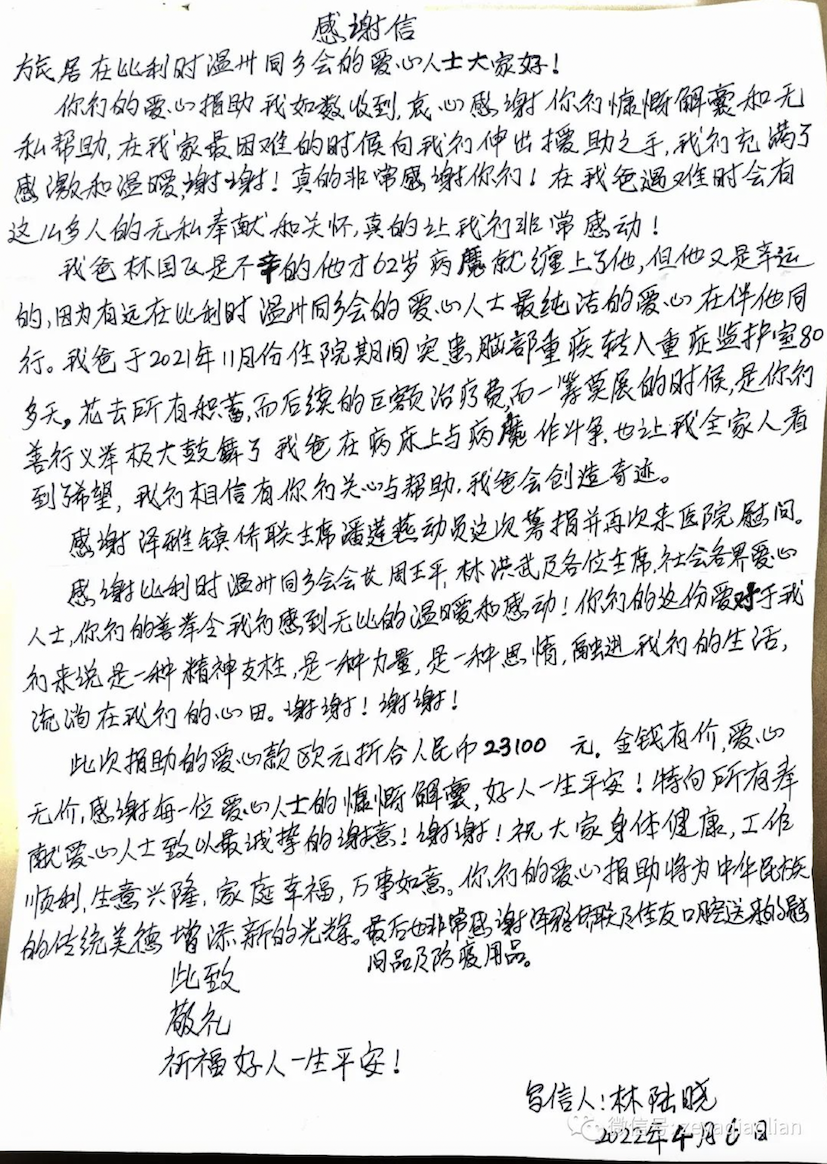 感谢信
旅居在比利时温州同乡会的爱心人士大家好!
你们的爱心捐助我如数收到,衷心感谢你们慷慨解囊和无
私帮助,在我家最困难的时候向我们伸出援助之手,我们充满了
感激和温暖,谢谢!真的非常感谢你们!在我爸遇难时会有
这么多人的无私奉献和关怀,真的让我们非常感动!
我爸林国飞是不幸的他才62岁病魔就缠上了他,但他又是幸运
的,因为有远在比利时温州同乡会的爱心人士最纯洁的爱心在伴他同
行。我爸于2021年11月份住院期间突患脑部重疾转入重症监护室80
多天。花去所有积蓄,而后续的巨额治疗费,而一筹莫展的时候,是你们
善行义举极大鼓舞了我爸在病床上与病魔作斗争,也让我全家人看
到了希望,我们相信有你们关心与帮助,我爸会创造奇迹。
感谢泽雅镇侨联主席潘莲燕动员这次筹捐并再次来医院慰问。
感谢比利时温州同乡会会长周玉平,林洪武及各位主席,社会各界爱心
人士,你们的善举令我们感到无比的温暖和感动!你们的这份爱对于我
们来说是一种精神支柱,是一种力量,是一种思情,融进我们的生活,
流淌在我们的心田。谢谢!谢谢!
此次捐助的爱心款欧元折合人民币23100 元。金钱有价,爱心
无价,感谢每一位爱心人士的慷慨解囊,好人一生平安!特向所有奉
献爱心人士致以最诚挚的谢意!谢谢!祝大家身体健康,工作
顺利,生意兴隆,家庭幸福,万事如意。你们的爱心捐助将为中华民族
的传统美德增添新的光辉。最后也非常感谢泽雅侨联及佳友口腔送来的慰
问品及防疫用品。
此致
敬礼
祈福好人一生平安!
写信人:林陆晓
微信号:zeyaqiaolian
2022年4月6日